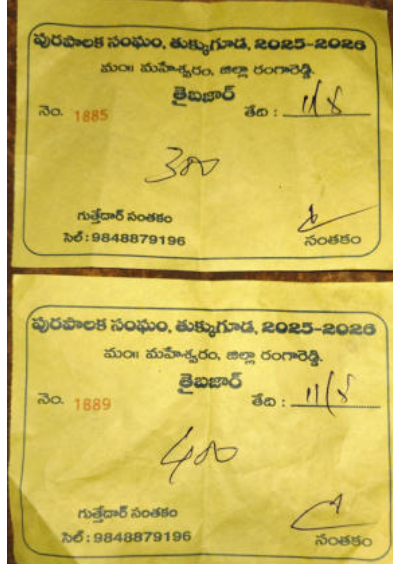 పురపాలక సంఘం, తుక్కుగూడ, 2025-2026
మం॥ మహేశ్వరం, జిల్లా రంగారెడ్డి.
తైబజార్
నెం. 1885 తేది : 11/8
300
గుత్తేదార్ సంతకం
సెల్ : 9848879196 సంతకం
పురపాలక సంఘం, తుక్కుగూడ, 2025-2026
మం॥ మహేశ్వరం, జిల్లా రంగారెడ్డి.
తైబజార్
నెం. 1889 తేది : 11/8
400
గుత్తేదార్ సంతకం
సెల్ : 9848879196 సంతకం